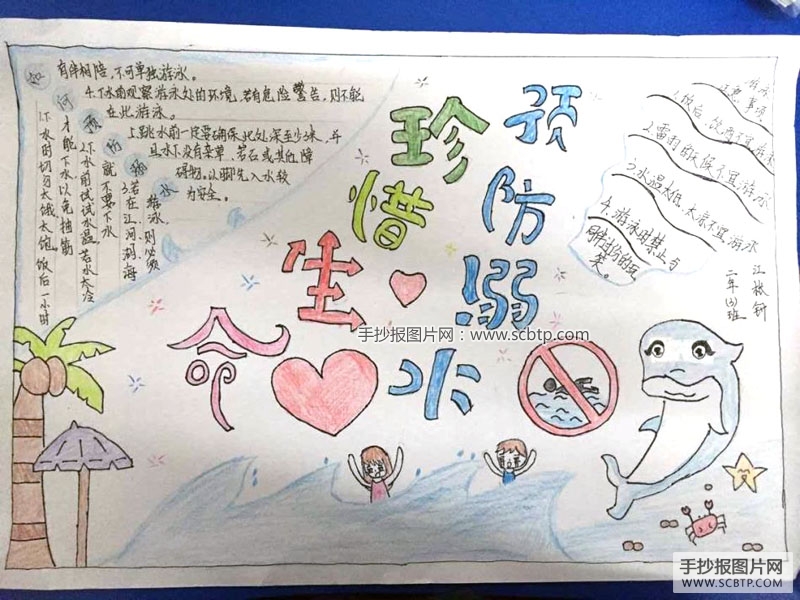 如何预防溺水
1.下水时切勿太饿、太饱。饭后一小时
才能下水,以免抽筋
2.下水前试试水温,若水太冷
就不要下水
3.若在江、河、湖、海
游泳,则必须
有伴相陪,不可单独游泳。
4.下水前观察游泳处的环境,若有危险警告,则不能
在此游泳。
5.跳水前一定要确保此处深至少3米,并
且水下没有杂草、岩石或其他障
碍物。以脚先入水较
为安全。
珍惜生命
预防溺水
游泳
注意事项
1.饭后、饮酒不宜游泳
2.雷雨的天候不宜游泳
3.水温太低、太凉不宜游泳
4.游泳时禁止与
同伴过份的玩
笑。
二年(3)班
手抄报图片网:www.scbtp.com
手抄报图片网
WWW.SCBTP.COM